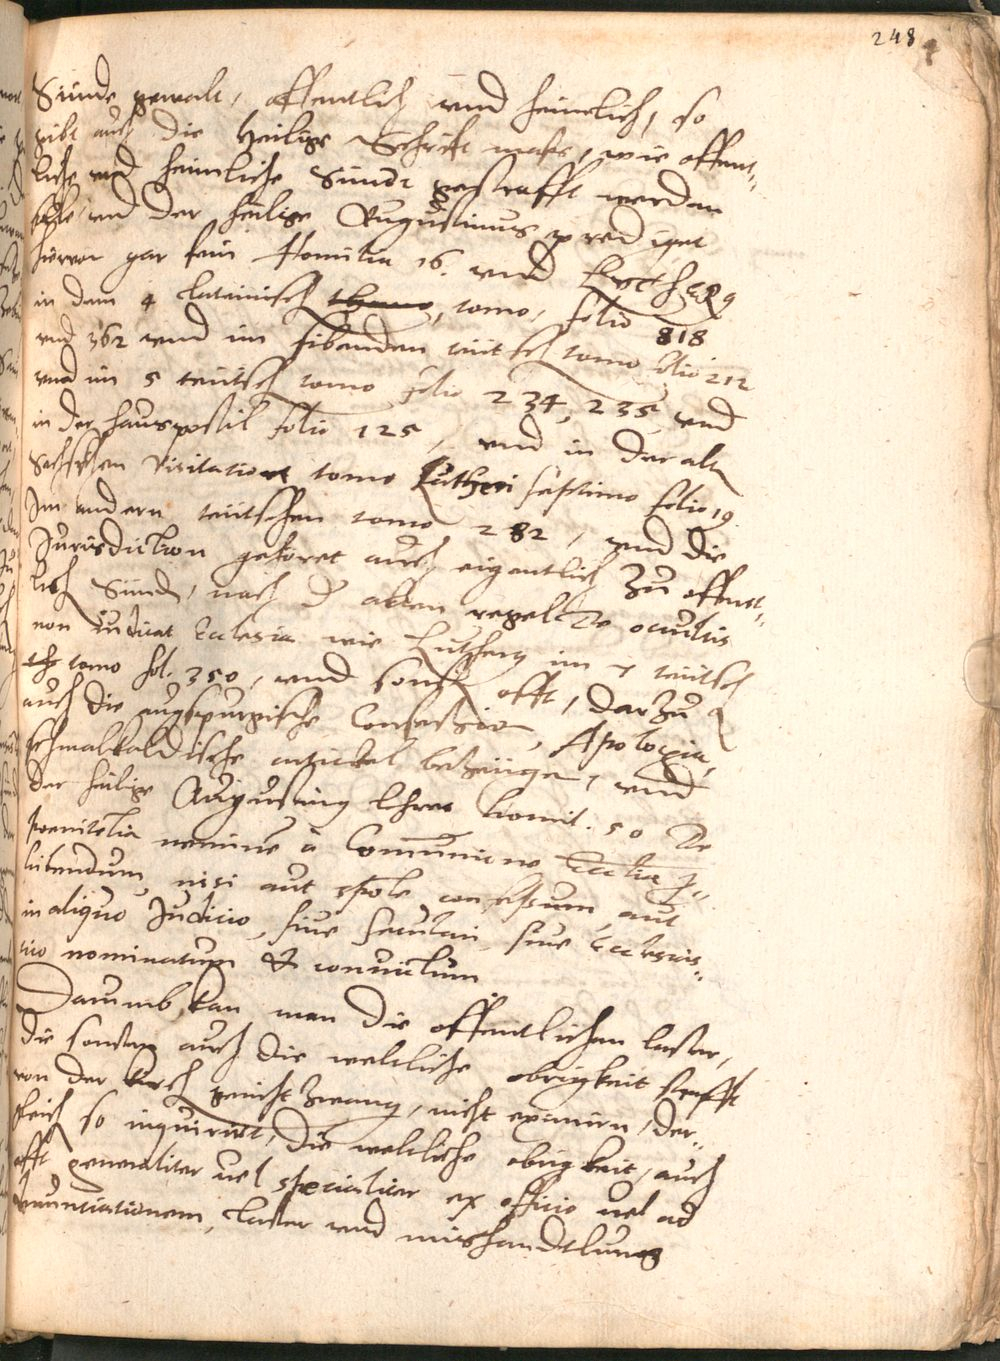 248
Sünde gewalt, offentlich vnd heimelich, so
gibt auch die heilige Schrift mass, wie offent-
liche vnd heimliche Sünde gestrafft werden
solle, vnd der heilige Augustinus prediget
hiervon gar fein Homilia 16. vnd Lutherg
in dem 4 lateinisch tomo, folio 818
vnd 362 vnd im sibenden teütsch tomo folio 212
vnd im 5 teütsch tomo folio 234, 235, vnd
in der hauspostil folio 125, vnd in der alten
Sechsischen Visitation tomo Lutheri septimo folio 19
Im andern teütschen tomo 282, vnd die
Jurisdiction gehöret auch eigentlich zu offent-
lich Sünden, nach der alten regel De occultis
non iudicat Ecclesia wie Lutherg im 7 teütsch
tomo fol. 350, vnd sonst offt, darzu
auch die augspurgische Confession, Apologia,
schmalkaldische artickel bezeügen, vnd
der heilige Augusting lehret homil. 50 De
poenitetia neminē à Comunione Ecclie p-
hibendum nisi aut spōte confessum, aut
in aliquo Judicio, siue seculari, siue Ecclesias-
tico nominatum & conuictum
Darumb kan man die offentlichen laster,
die sonsten auch die weltliche obrigkeit strafft
von der kirch gericht zwang, nicht eximirn, der-
gleich so inquirirt, die weltliche obrigkeit, auch
offt generaliter uel specialiter ex officio uel ad
denuntiationem, laster vnd mishandlung